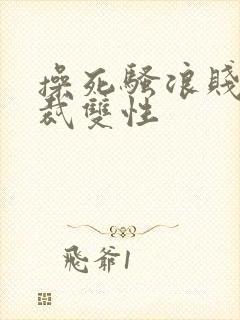 操死騷浪賤
裁雙性
飛爺1